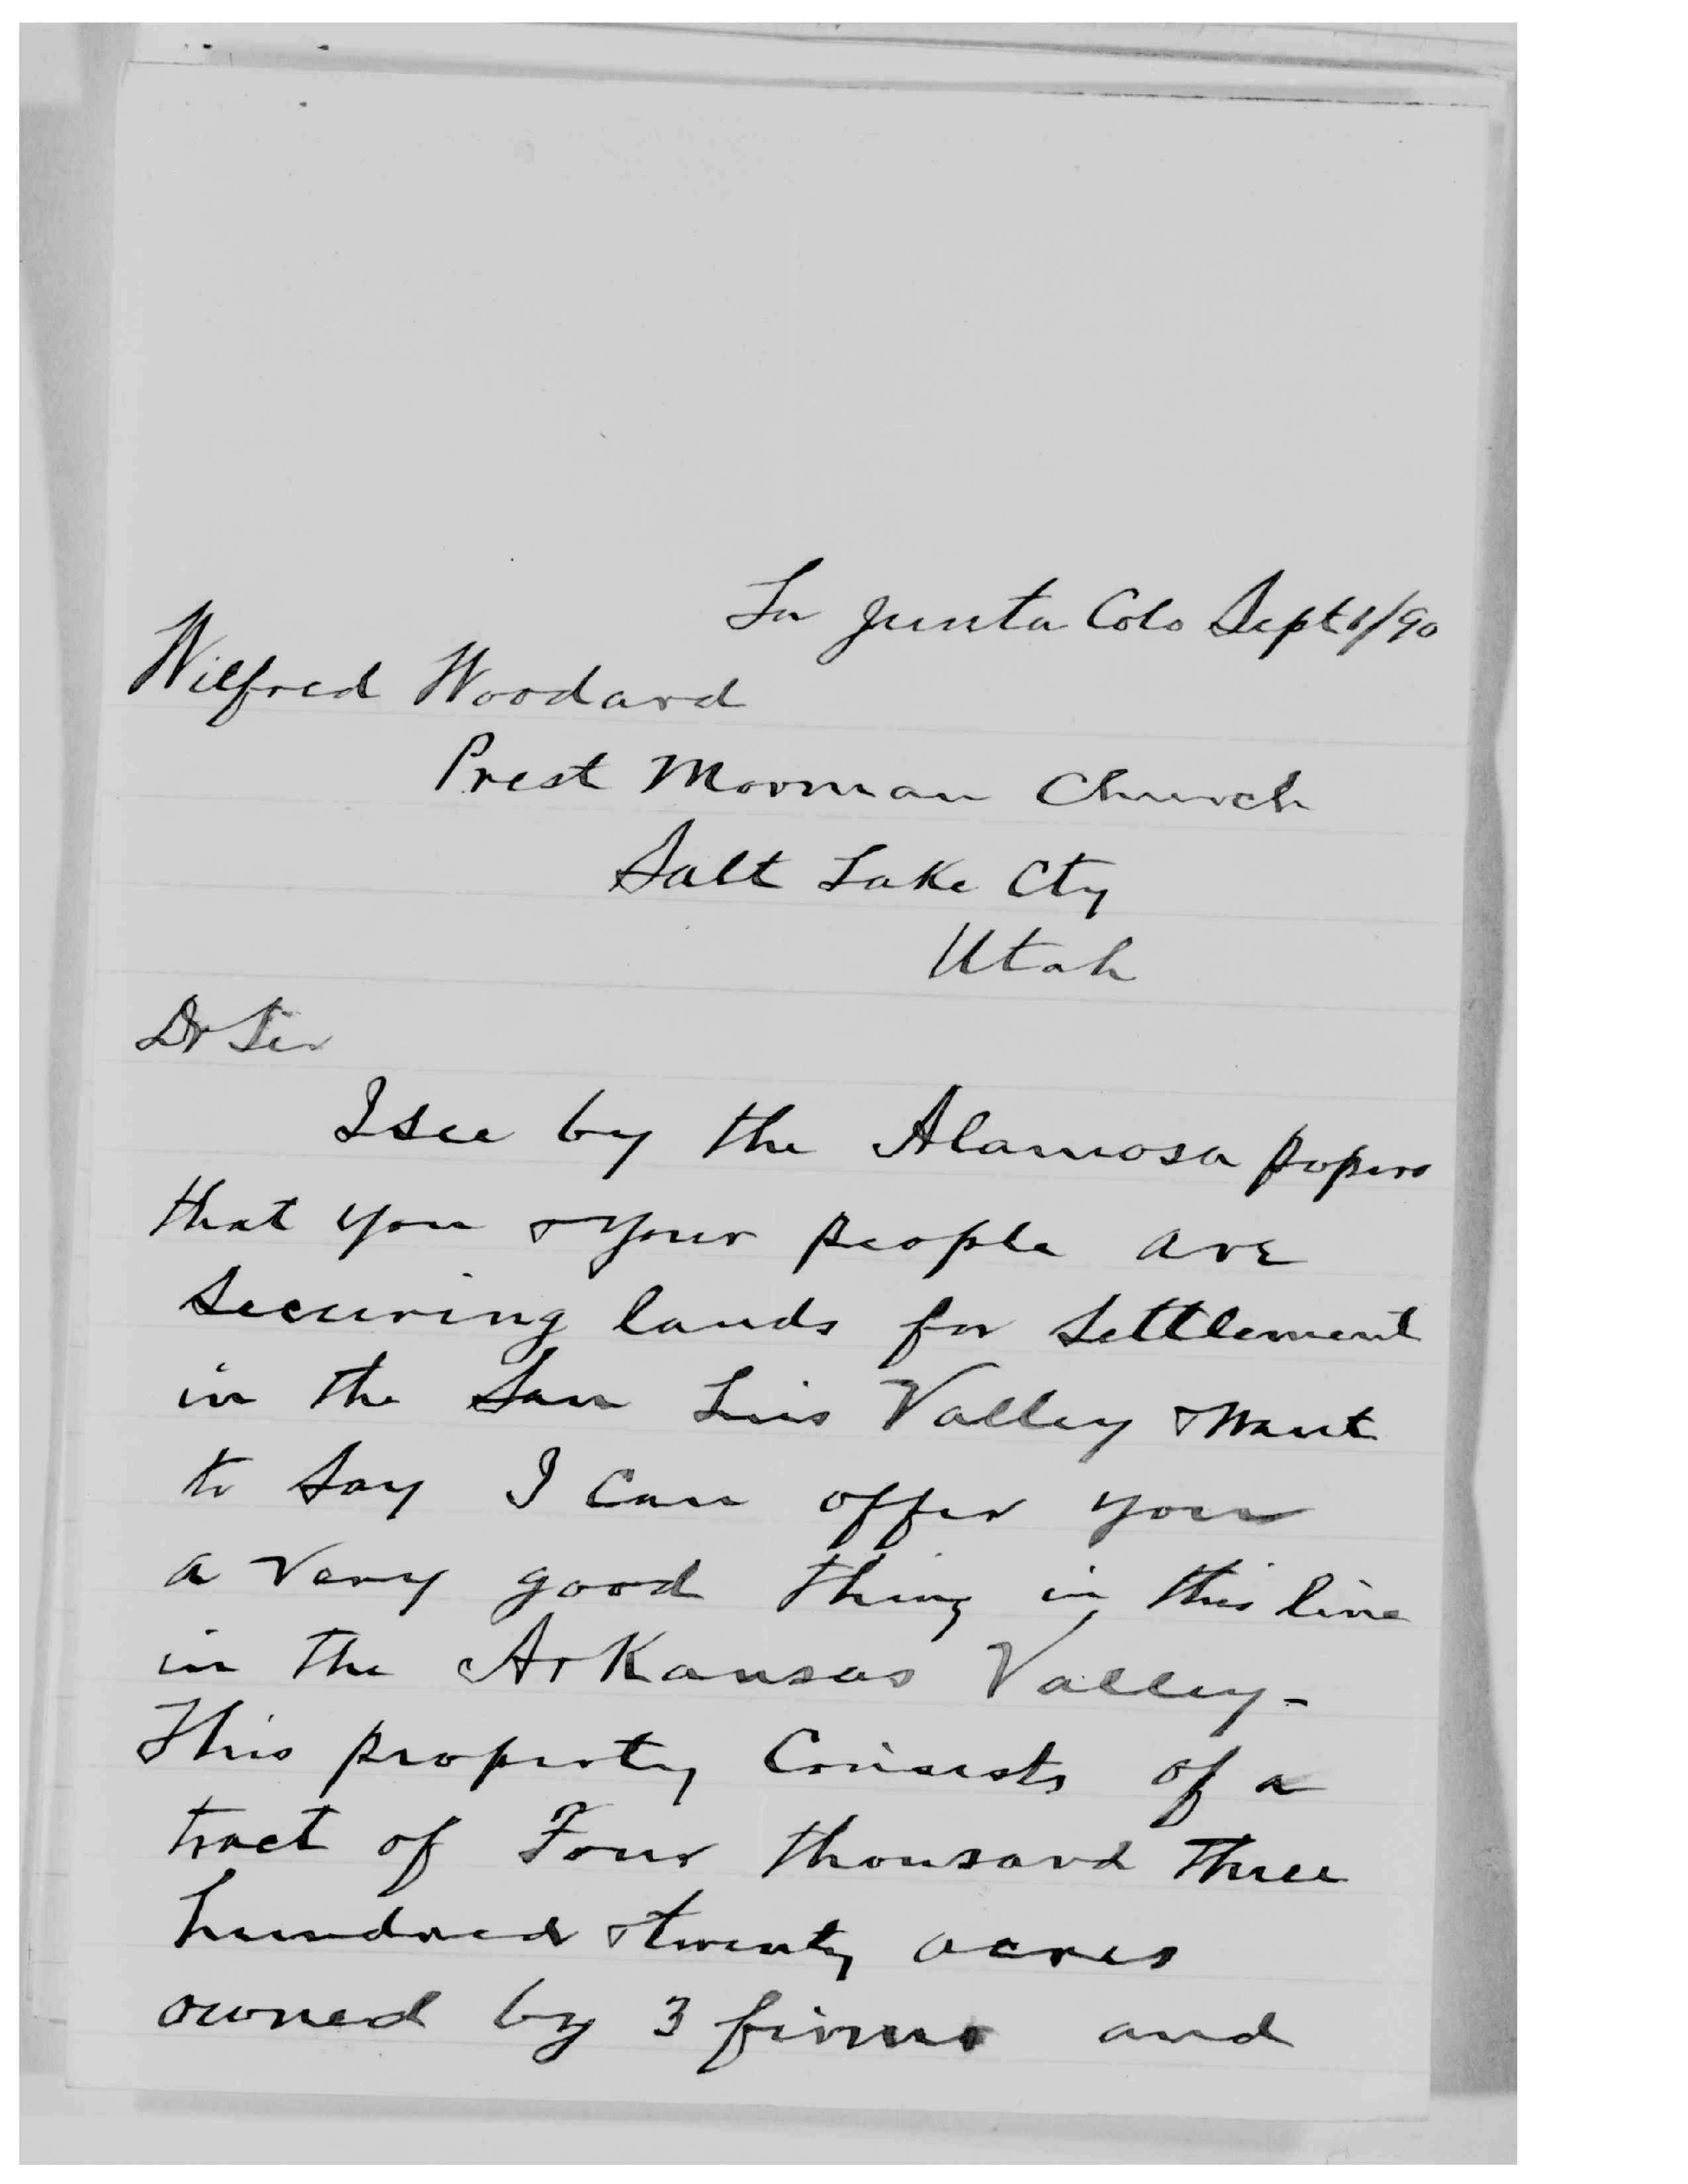 La Junta Colo Sept 1/90
Wilfred Woodard
Prest Morman Church
Salt Lake Cty
Utah
Dr Sir
I see by the Alamosa papers
that you & your people are
securing lands for settlement
in the San Luis Valley & want
to say I can offer you
a very good thing in this line
in the Arkansas Valley-
This property consists of a
tract of Four thousand three
hundred & twenty acres
owned by 3 firms and